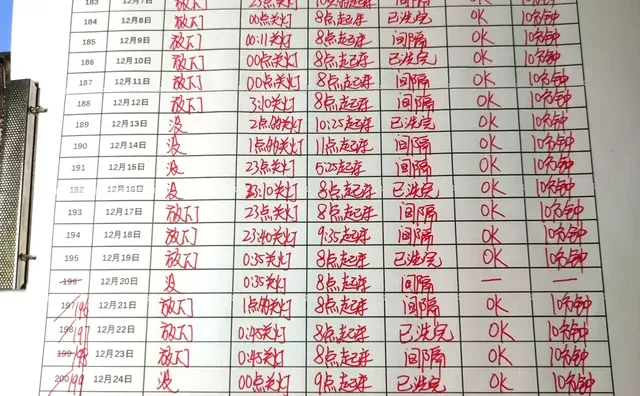 183 12月7日 放入 23点关灯 起床 间隔 OK 10分钟
184 12月8日 放入 00点关灯 8点起床 已洗完 OK 10分钟
185 12月9日 放入 00:11关灯 8点起床 间隔 OK 10分钟
186 12月10日 放入 00点关灯 8点起床 已洗完 OK 10分钟
187 12月11日 放入 00点关灯 8点起床 间隔 OK 10分钟
188 12月12日 放入 3:10关灯 8点起床 间隔 OK 10分钟
189 12月13日 没 2点 关灯 10:25起床 已洗完 OK 10分钟
190 12月14日 没 1点 关灯 11点起床 间隔 OK 10分钟
191 12月15日 没 23点关灯 5:25起床 间隔 OK 10分钟
192 12月16日 没 23:10关灯 8点起床 已洗完 OK 10分钟
193 12月17日 放入 23点关灯 8点起床 间隔 OK 10分钟
194 12月18日 放入 23:40关灯 9:35起床 间隔 OK 10分钟
195 12月19日 放入 0:35关灯 8点起床 已洗完 OK 10分钟
196 12月20日 没 0:35关灯 8点起床 间隔 — —
197 196 12月21日 放入 1点 关灯 8点起床 间隔 OK 10分钟
198 197 12月22日 放入 0:45关灯 8点起床 已洗完 OK 10分钟
199 198 12月23日 放入 0:45关灯 8点起床 间隔 OK 10分钟
200 199 12月24日 没 00点关灯 9点起床 已洗完 OK 10分钟